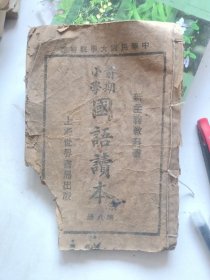 中華民國大學院審定
新主義教科書
前期小學
國語讀本
上海世界書局出版